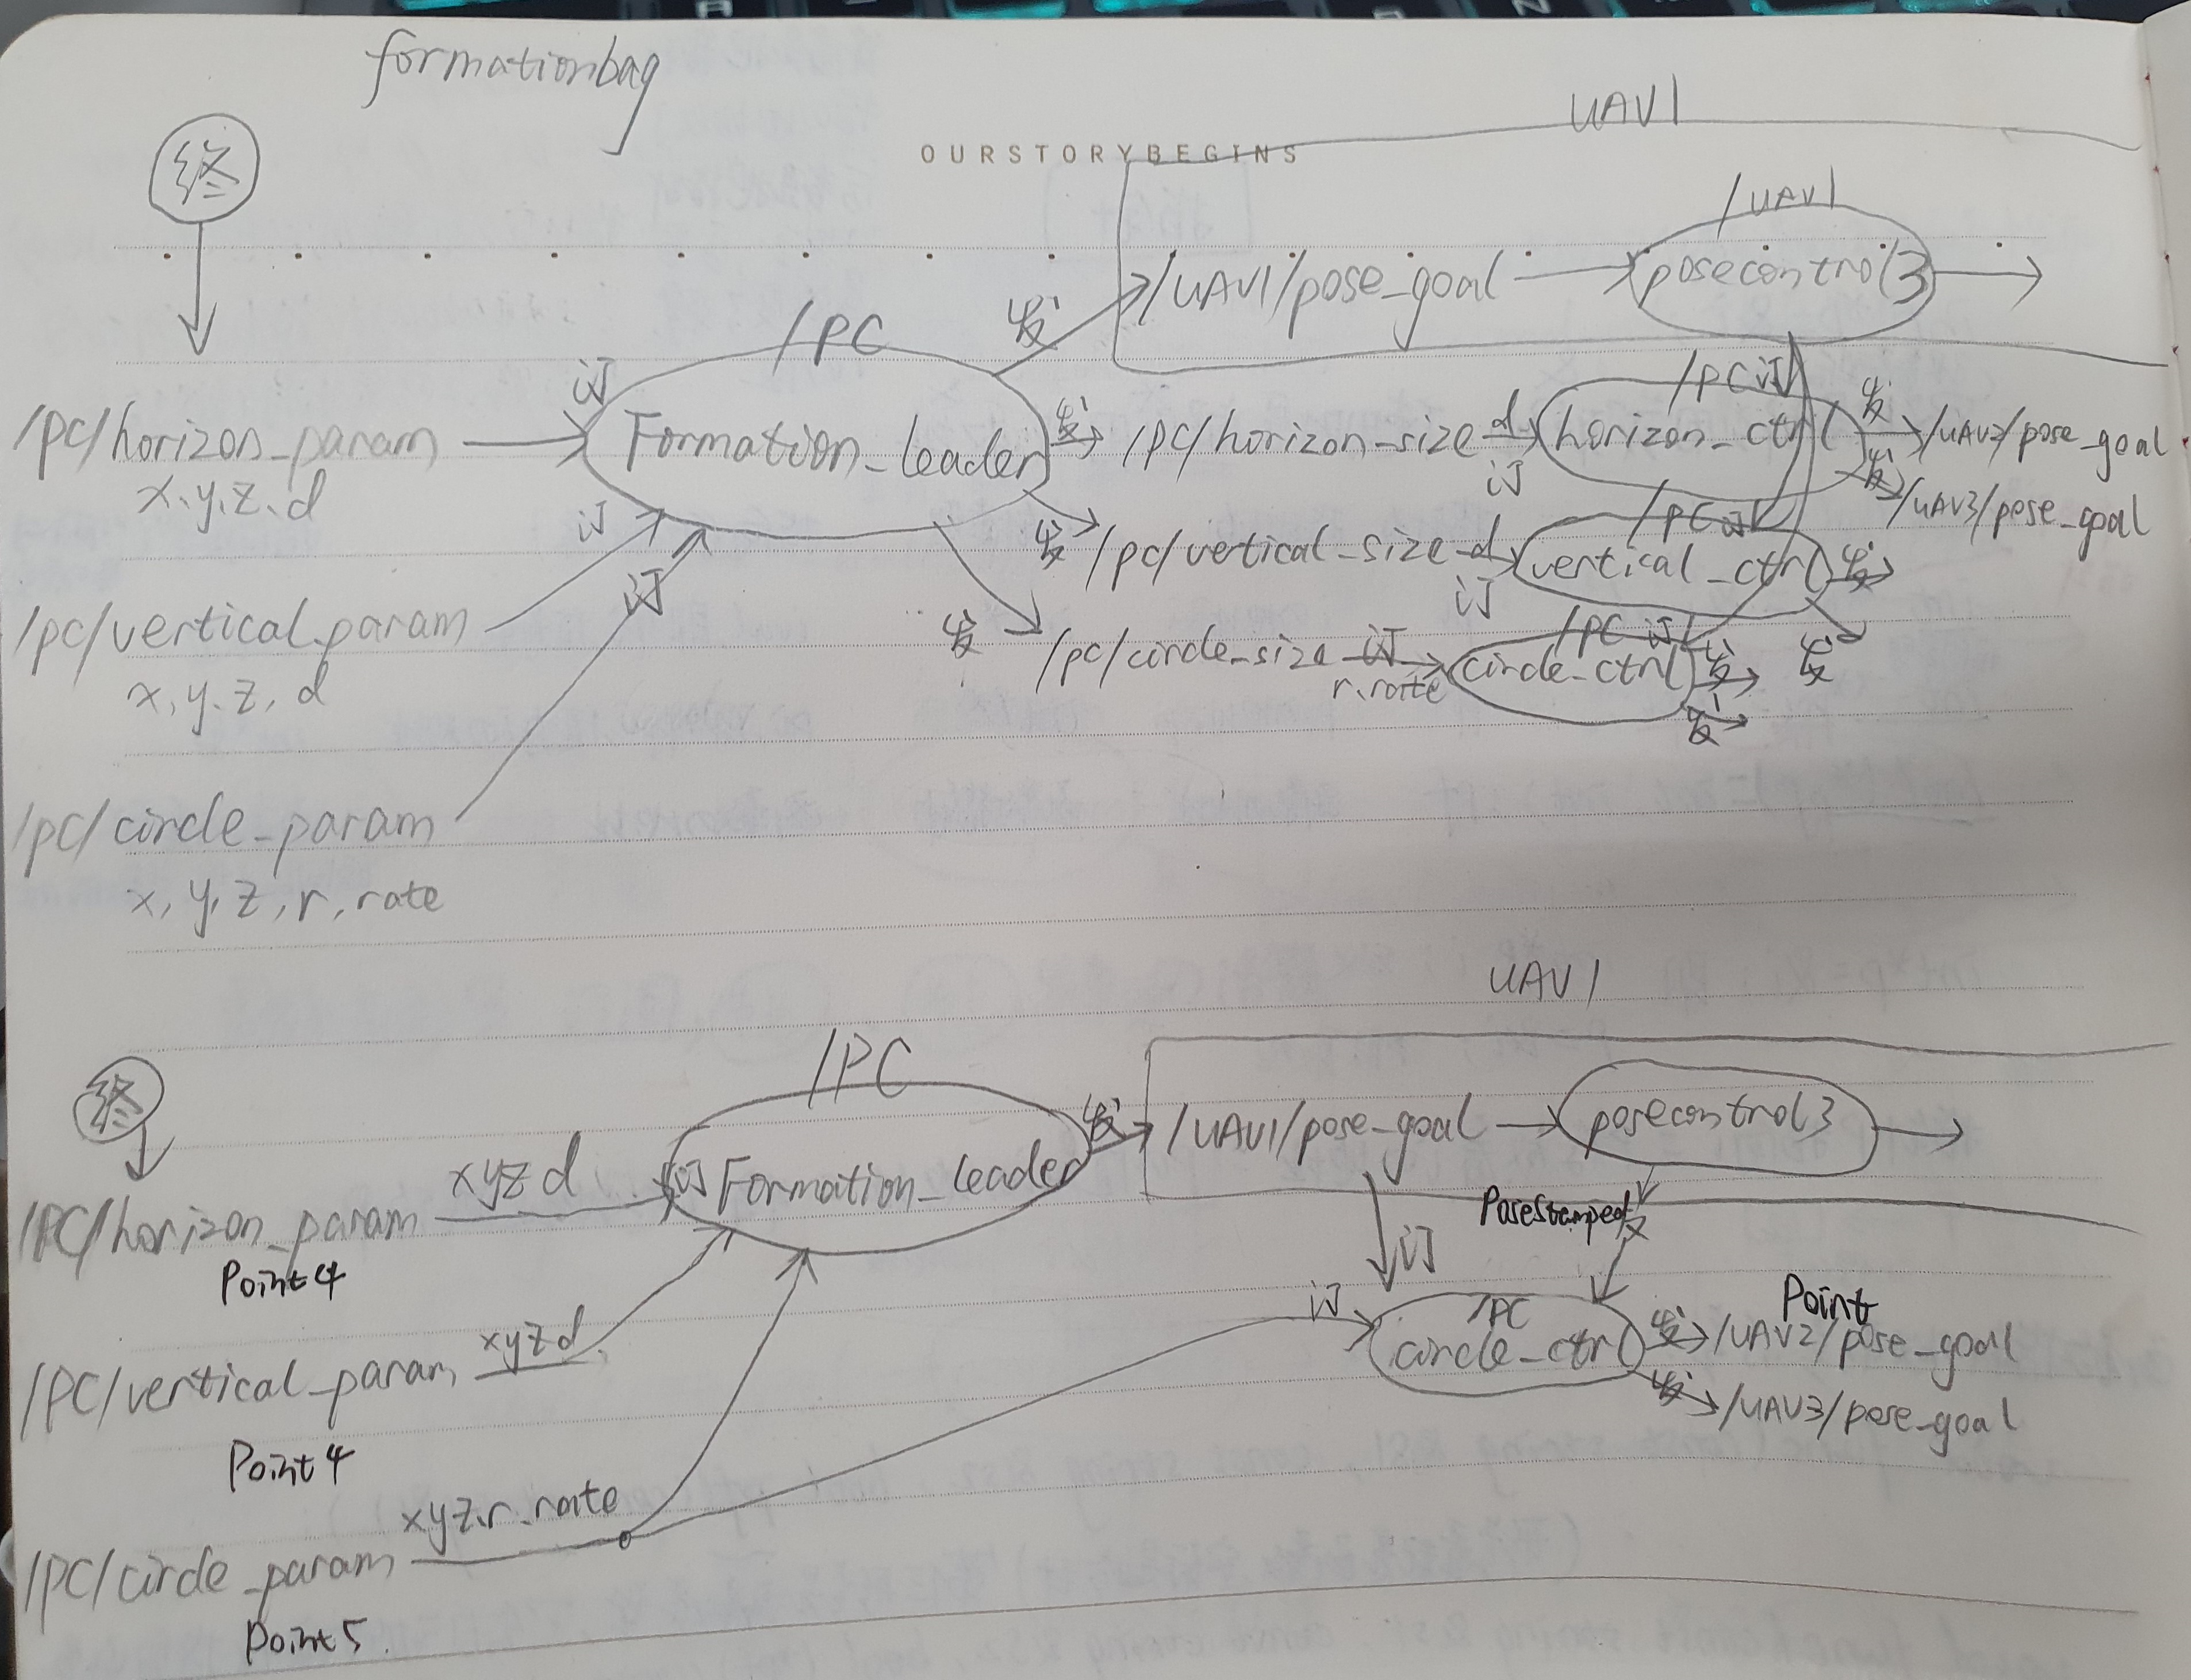 formationbag
UAV1
OURSTORYBEGINS
终
/UAV1
/UAV1/pose_goal
posecontrol3
发
/PC
订
/PC 订
发
/pc/horizon_param
Formation_Leader
发
/pc/horizon-size
d
horizon_ctrl
/UAV2/pose_goal
x、y、z、d
订
订
发
/UAV3/pose_goal
/PC 订
发
/pc/vertical_size
d
vertical_ctrl
发
订
订
/pc/vertical_param
发
/PC 订
/pc/circle_size
订
circle_ctrl
发
发
x,y,z,d
r.rate
发
/pc/circle_param
x,y,z,r,rate
UAV1
终
/PC
发
/UAV1/pose_goal
posecontrol3
xyzd
订
Formation_Leader
/PC/horizon_param
PoseStamped
发
Point4
订
订
/PC
Point
xyzd
circle_ctrl
发
/UAV2/pose_goal
/PC/vertical_param
发
/UAV3/pose_goal
Point4
xyz.r.rate
/PC/circle_param
Point5.